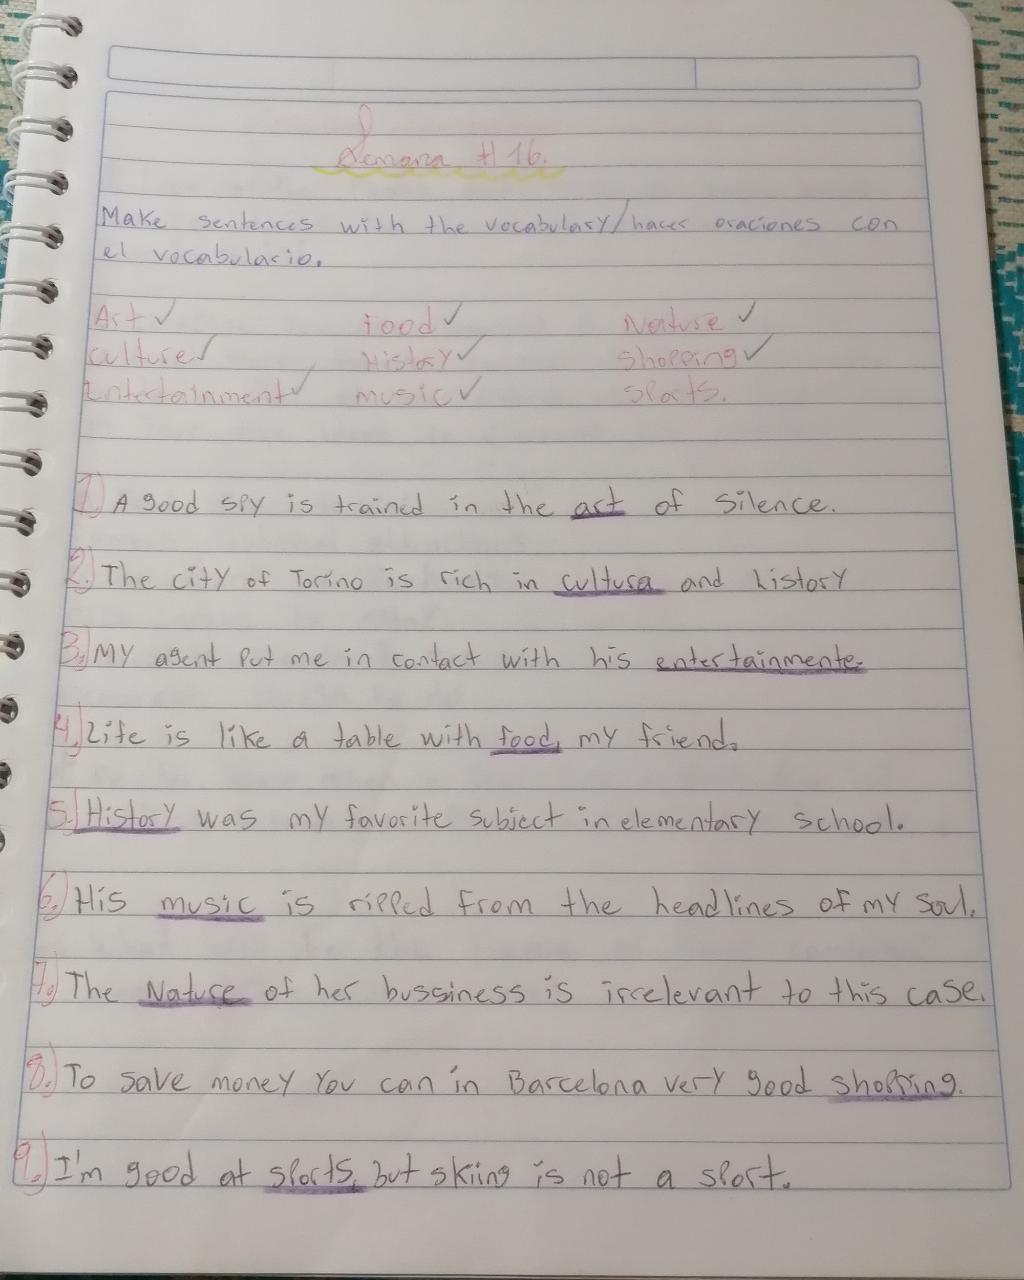 Semana # 16.
Make sentences with the vocabulary/hacer oraciones con
el vocabulario.
Art ✓ Food ✓ Nature ✓
culture ✓ History ✓ shopping ✓
Entertainment ✓ music ✓ sports.
1.) A good spy is trained in the art of silence.
2.) The city of Torino is rich in cultura and history
3.) My agent put me in contact with his entertainmente.
4.) Life is like a table with food, my friend.
5.) History was my favorite subject in elementary school.
6.) His music is ripped from the headlines of my soul.
7.) The Nature of her bussiness is irrelevant to this case.
8.) To save money you can in Barcelona very good shopping.
9.) I'm good at sports, but skiing is not a sport.